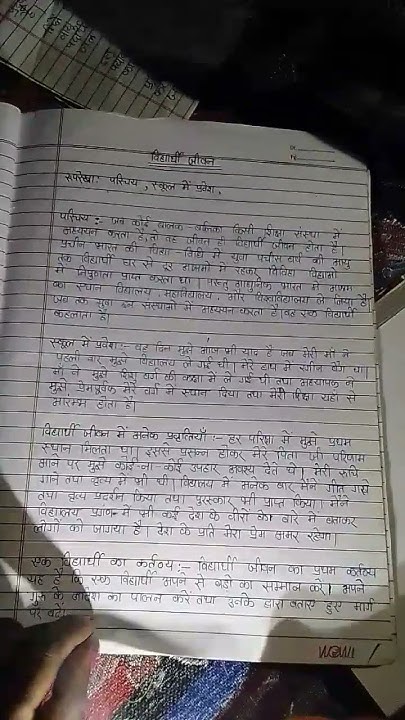 विद्यार्थी जीवन
रुपरेखा: परिचय, स्कूल में प्रवेश,
परिचय :- जब कोई बालक-बालिका किसी शिक्षा संस्था में
अध्ययन करता है, तो वह जीवन ही विद्यार्थी जीवन होता है।
प्राचीन भारत की विद्या-विधि में युवा पच्चीस वर्ष की आयु
तक विद्यार्थी घर से दूर आश्रमों में रहकर विविध विद्याओं
में निपुणता प्राप्त करता था। परन्तु आधुनिक भारत में आश्रम
का स्थान विद्यालय, महाविद्यालय, और विश्वविद्यालय ले लिया है
जब तक युवा इन संस्थानों में अध्ययन करता है। वह एक विद्यार्थी
कहलाता है।
स्कूल में प्रवेश:- वह दिन मुझे आज भी याद है जब मेरी माँ ने
पहली बार मुझे विद्यालय ले गई थी। मेरे हाथ में स्कूल बैग था।
माँ ने मुझे शिशु वर्ग की कक्षा में ले गई थी तथा अध्यापक ने
मुझे प्रेमपूर्वक मेरे वर्ग में स्थान दिया तथा मेरी शिक्षा यहीं से
आरम्भ होता है।
विद्यार्थी जीवन में अनेक प्रवृतियाँ:- हर परिक्षा में मुझे प्रथम
स्थान मिलता था। इससे प्रसन्न होकर मेरे पिता जी परिणाम
आने पर मुझे कोई ना कोई उपहार अवश्य देते थे। मेरी रुचि
गाने तथा नृत्य में भी थी। विद्यालय में अनेक बार मैंने गीत गाये
तथा नृत्य प्रदर्शन किया तथा पुरस्कार भी प्राप्त किया। मैंने
विद्यालय प्रांगण में भी कई देश के वीरों के बारे में बताकर
लोगों को जगाया है। देश के प्रति मेरा प्रेम अमर रहेगा।
एक विद्यार्थी का कर्तव्य:- विद्यार्थी जीवन का प्रथम कर्तव्य
यह है कि एक विद्यार्थी अपने से बड़ों का सम्मान करें। अपने
गुरु के आदेश का पालन करें तथा उनके द्वारा बताए हुए मार्ग
पर चलें।